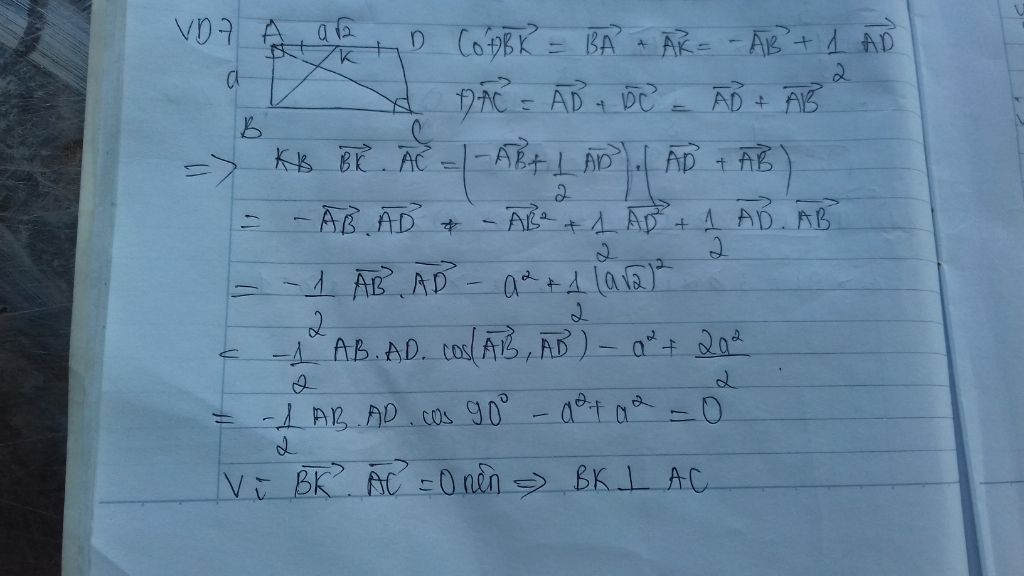 VD7 A a√2 D
K
a
B C
Có +) BK⃗ = BA⃗ + AK⃗ = -AB⃗ + 1/2 AD⃗
+) AC⃗ = AD⃗ + DC⃗ = AD⃗ + AB⃗
=> BK⃗ . AC⃗ = (-AB⃗ + 1/2 AD⃗) . (AD⃗ + AB⃗)
= - AB⃗ . AD⃗ - AB⃗² + 1/2 AD⃗² + 1/2 AD⃗ . AB⃗
= - 1/2 AB⃗ . AD⃗ - a² + 1/2 (a√2)²
= -1/2 AB . AD . cos(AB⃗, AD⃗) - a² + 2a²/2
= -1/2 AB . AD . cos 90° - a² + a² = 0
Vì BK⃗ . AC⃗ = 0 nên => BK ⊥ AC